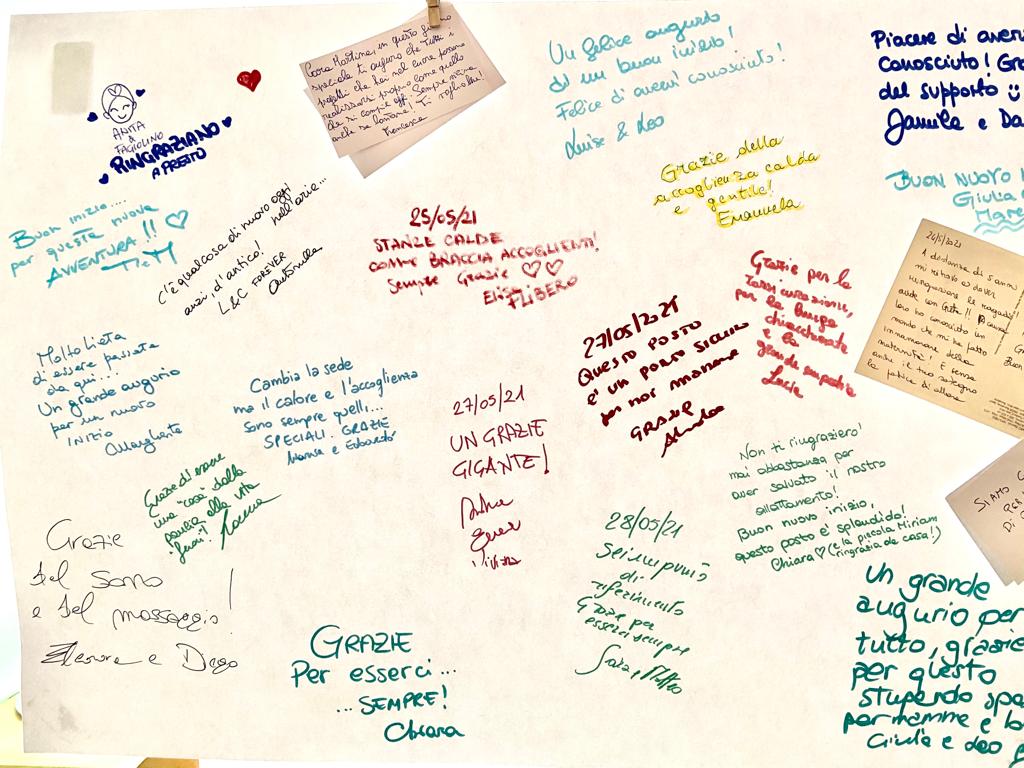 ANITA
&
FAGIOLINO
RINGRAZIANO
A PRESTO
Cara Martina, in questo giorno
speciale ti auguro che tutti i
progetti che hai nel cuore possano
realizzarsi proprio come quello
che si compie oggi. Sempre vicine
anche se lontane! Ti voglio bene!
Francesca
Un felice augurio
di un buon inizio!
Felice di avervi conosciuto!
Luise & Leo
Piacere di aver
conosciuto! Gra
del supporto
Jamila e Da
Grazie della
accoglienza calda
e gentile!
Emanuela
BUON NUOVO I
Giulia
Mar
Buon inizio....
per questa nuova
AVVENTURA!!
TeM
c'è qualcosa di nuovo oggi
nell'aria...
anzi d'antico!
L&C FOREVER
Antonella
25/05/21
STANZE CALDE
COME BRACCIA ACCOGLIENTI!
Sempre Grazie
Elisa
FLIBERO
Grazie per la
rassicurazione,
per la lunga
chiacchierata
e la
grande empatia
Lucia
24/5/2021
A distanza di 5 anni
mi ritrovo a dover
ringraziare le ragazze!
loro ho conosciuto un
mondo che mi ha fatto
innamorare della
maternità! E senza
anche il tuo sostegno
la fatica di allora
27/05/2021
QUESTO POSTO
E' UN PORTO SICURO
per noi mamme
GRAZIE
Molto lieta
di essere passata
da qui...
Un grande augurio
per un nuovo
INIZIO
Margherita
Cambia la sede
ma il calore e l'accoglienza
sono sempre quelli...
SPECIALI. GRAZIE
e Edoardo
27/05/21
UN GRAZIE
GIGANTE!
Non ti ringraziero!
mai abbastanza per
aver salvato il nostro
allattamento!
Buon nuovo inizio,
questo posto è splendido!
Chiara (e la piccola Miriam
(ringrazia da casa!)
Grazie di essere
una "casa" dalla
pancia alla vita
fuori!
SIAMO C
PER
DI
28/05/21
Sei un punto
di
riferimento
Grazie per
esserci sempre
Sara,
Grazie
del Sonno
e del massaggio!
Eleonora e Diego
GRAZIE
Per esserci...
... SEMPRE!
Chiara
Un grande
augurio per
tutto, grazie
per questo
stupendo spa
per mamme e b
Giulia e Leo